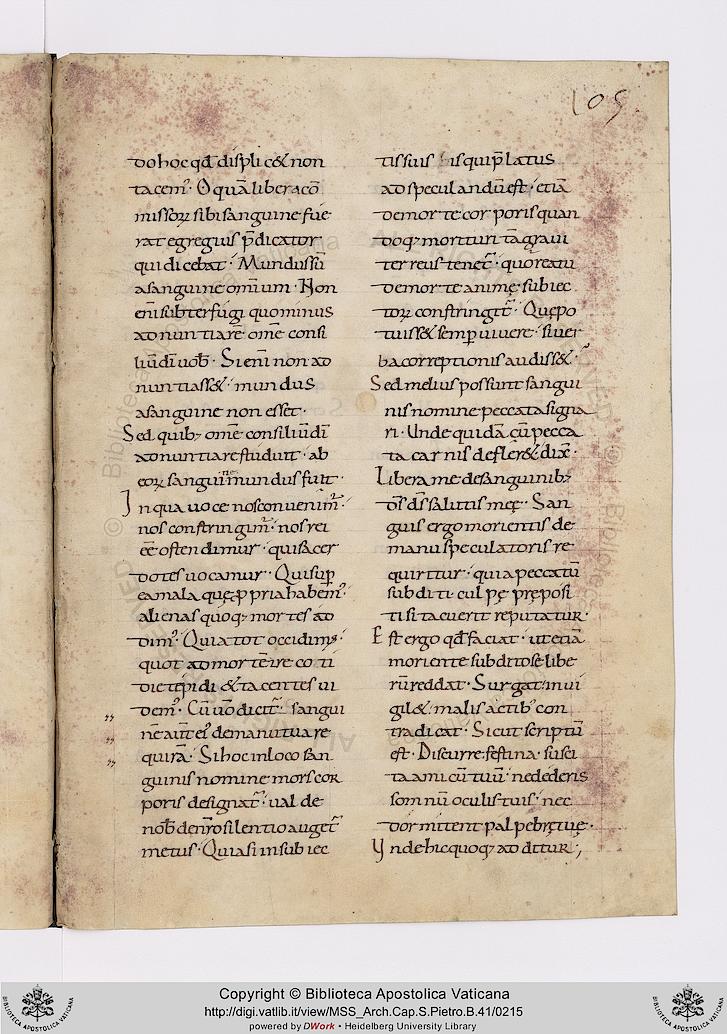 105.
do hoc qđ displic& non
tacem᾽· O quā liber a cō
missoꝝ sibi sanguine fue
rat egregius p̄dicator
qui dicebat · Mundus sū
a sanguine omium · Non
eni subterfugi quominus
adnuntiare ome consi
liū di uob · Si eni non ad
nuntiass& · mundus
a sanguine non esset ·
Sed quib; ome consiliū di
adnuntiare studuit · ab
eoꝝ sanguine mundus fuit ·
In qua uoce nos conuenim᾽ ·
nos constringim᾽ · nos rei
eē ostendimur · qui sacer
dotes uocamur · Qui sup
ea mala quę p̱pria habem᾽ ·
alienas quoq; mortes ad
dim᾽ · Quia tot occidim᾽ ·
quot ad morte ire coti
die tepidi & tacentes ui
dem᾽ · Cū uo dicit᾽ · sangui
ne aut ei᾽ de manu tua re
quira · Si hoc in loco san
guinis nomine mors cor
poris designat᾽ · ualde
nob de nro silentio auget᾽
metus · Quia si in subiec
tis suis is qui p̄latus
ad speculandū est · etiā
de morte corporis quan
doq; morituri tā graui
ter reus tenet᾽ · quo reatu
de morte animę subiec
toꝝ constringit᾽ · Quę po
tuiss& semp uiuere · si uer
ba correptionis audiss& ·
Sed melius possunt sangui
nis nomine peccata signa
ri · Unde quidā cū pecca
ta carnis defler& dix ·
Libera me de sanguinib;
ds ds salutis meę · San
guis ergo morientis de
manu speculatoris re
quiritur · quia peccatū
subditi culpę pręposi
ti si tacuerit reputatur ·
Est ergo qđ faciat · ut etiā
moriente subdito se libe
rū reddat · Surgat · inui
gil& · malis actib᾽ con
tradicat · Sicut scriptū
est · Discurre · festina · susci
ta amicū tuū · ne dederis
somnū oculis tuis · nec
dormitent palpebrę tuę ·
Ynde hic quoq; additur ;
Copyright © Biblioteca Apostolica Vaticana
http://digi.vatlib.it/view/MSS_Arch.Cap.S.Pietro.B.41/0215
powered by DWork • Heidelberg University Library
BIBLIOTECA APOSTOLICA VATICANA
BIBLIOTECA APOSTOLICA VATICANA